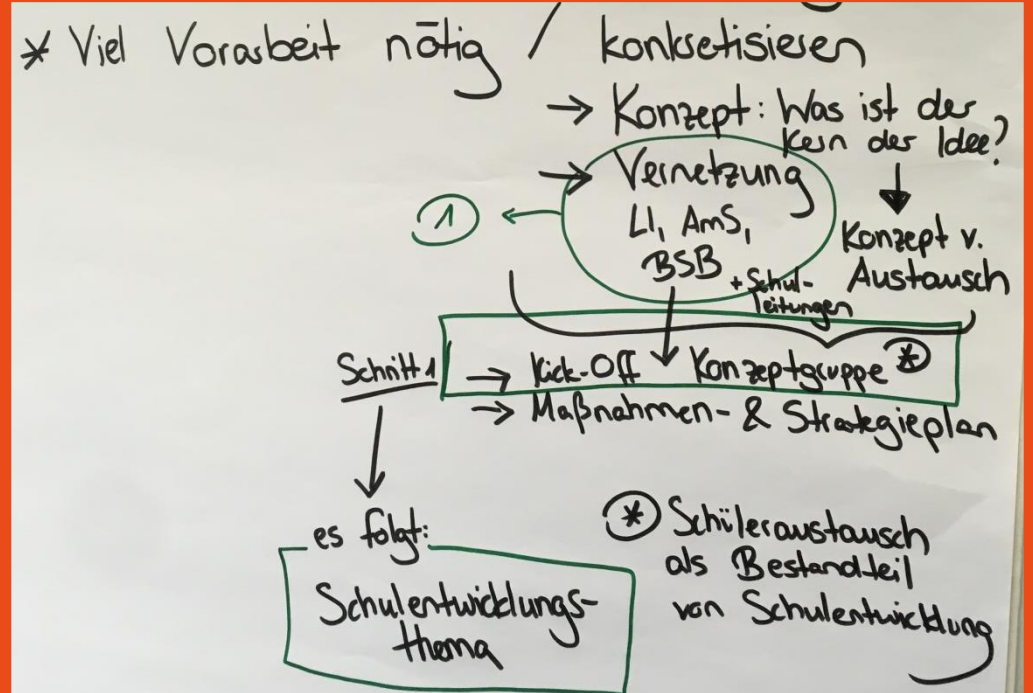 * Viel Vorarbeit nötig / konkretisieren
→ Konzept: Was ist der
Kern der Idee?
→ Vernetzung
LI, AmS,
BSB
+ Schul-
leitungen
①
Konzept v.
Austausch
Schritt 1
→ Kick-Off Konzeptgruppe *
→ Maßnahmen- & Strategieplan
es folgt:
Schulentwicklungs-
thema
* Schüleraustausch
als Bestandteil
von Schulentwicklung